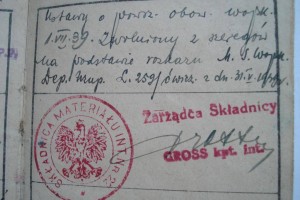 Ustawy o powsz. obow. wojsk.
1.VII.39. Zwolniony z szeregów
na podstawie rozkazu M. S. Wojsk.
Dep. Uzup. L. 259/
Zarządca Składnicy
GROSS kpt. int.
SKŁADNICA MATERIAŁU INT. NR